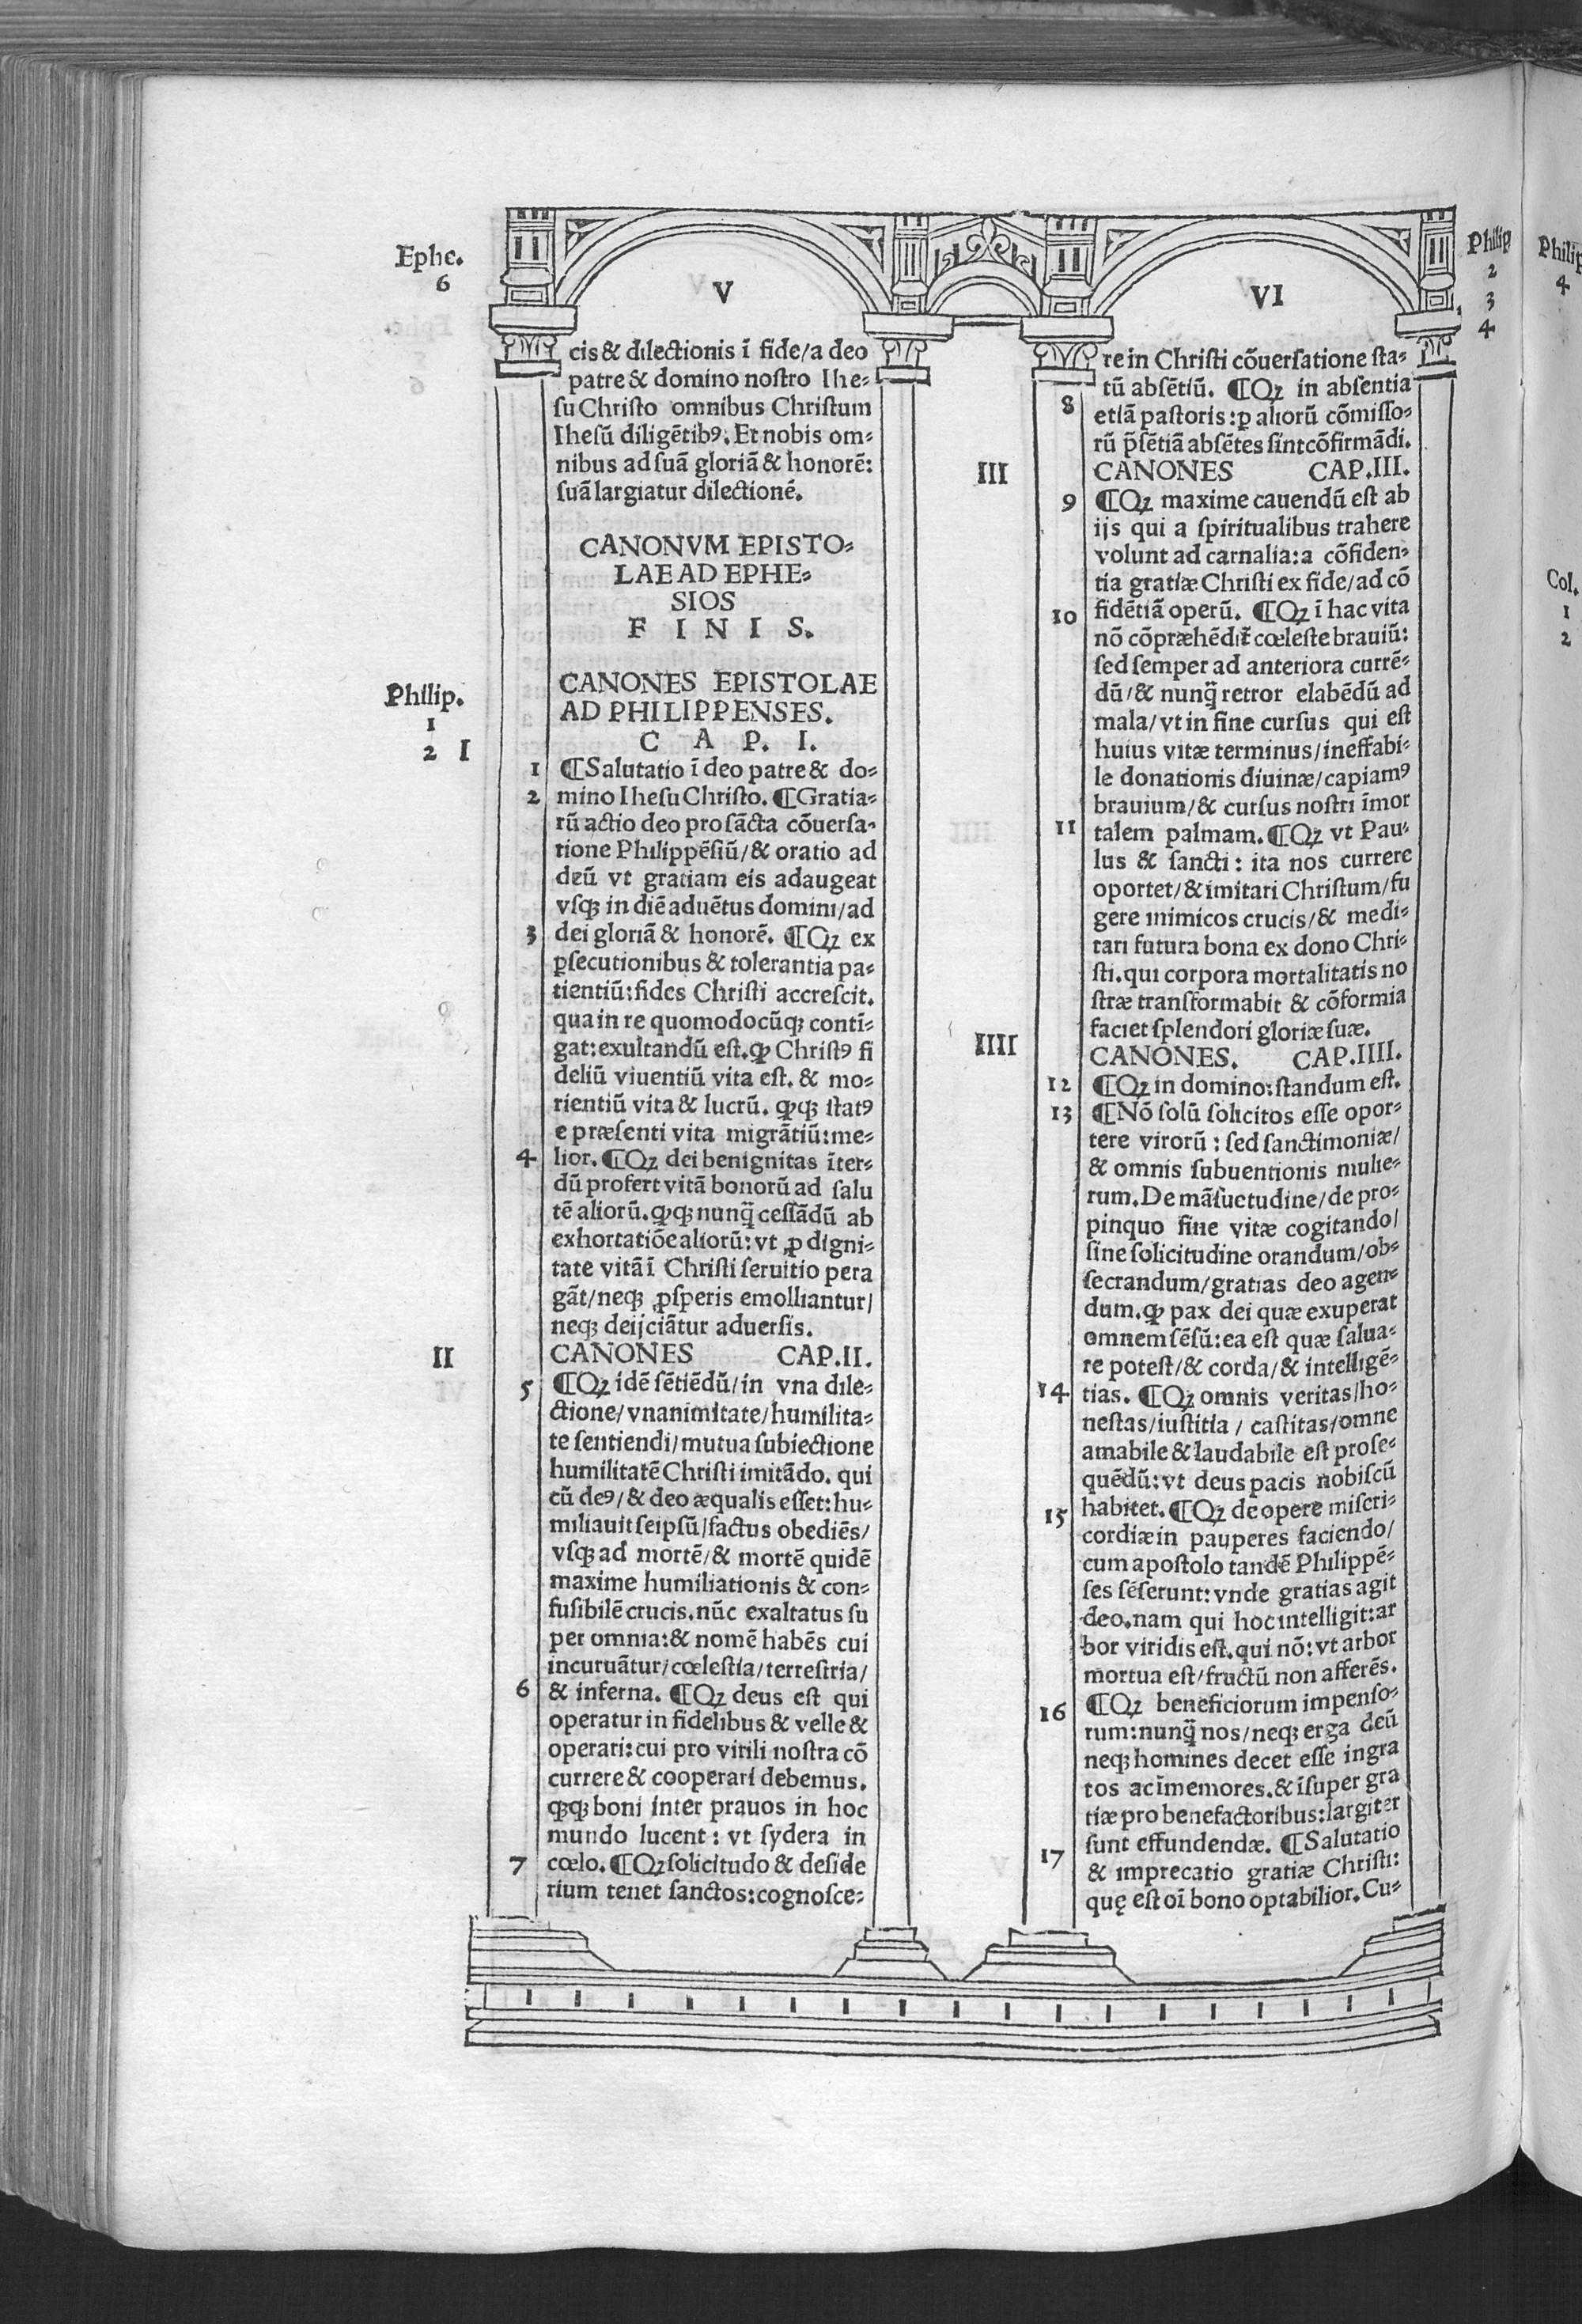 Ephe.
6
V
cis & dilectionis ĩ fide/a deo
patre & domino nostro Ihe-
su Christo omnibus Christum
Ihesũ diligẽtibꝰ. Et nobis om-
nibus ad suã gloriã & honorẽ:
suã largiatur dilectionẽ.
CANONVM EPISTO-
LAE AD EPHE-
SIOS
F I N I S.
Philip.
1
2
CANONES EPISTOLAE
AD PHILIPPENSES.
I C A P. I.
1 ¶Salutatio ĩ deo patre & do-
2 mino Ihesu Christo. ¶Gratia-
rũ actio deo pro sãcta cõuersa-
tione Philippẽsiũ/& oratio ad
deũ vt gratiam eis adaugeat
vsqꝫ in diẽ aduẽtus domini/ad
3 dei gloriã & honorẽ. ¶Qꝫ ex
ꝑsecutionibus & tolerantia pa-
tientiũ: fides Christi accrescit.
qua in re quomodocũqꝫ contĩ-
gat: exultandũ est. ꝙ Christꝰ fi
deliũ viuentiũ vita est. & mo-
rientiũ vita & lucrũ. ꝙqꝫ statꝰ
e præsenti vita migrãtiũ: me-
4 lior. ¶Qꝫ dei benignitas ĩter-
dũ profert vitã bonorũ ad salu
tẽ aliorũ. ꝙqꝫ nunq̃ cessãdũ ab
exhortatiõe aliorũ: vt ꝓ digni-
tate vitã ĩ Christi seruitio pera
gãt/neqꝫ ꝓsperis emolliantur/
neqꝫ deijciãtur aduersis.
II CANONES CAP.II.
5 ¶Qꝫ idẽ sẽtiẽdũ/in vna dile-
ctione/vnanimitate/humilita-
te sentiendi/mutua subiectione
humilitatẽ Christi imitãdo. qui
cũ deꝰ/& deo æqualis esset: hu-
miliauit seipsũ/factus obediẽs/
vsqꝫ ad mortẽ/& mortẽ quidẽ
maxime humiliationis & con-
fusibilẽ crucis. nũc exaltatus su
per omnia: & nomẽ habẽs cui
incuruãtur/cœlestia/terrestria/
6 & inferna. ¶Qꝫ deus est qui
operatur in fidelibus & velle &
operari: cui pro virili nostra cõ
currere & cooperari debemus.
ꝙqꝫ boni inter prauos in hoc
mundo lucent: vt sydera in
7 cœlo. ¶Qꝫ solicitudo & deside
rium tenet sanctos: cognosce-
Philip
2
3
4
VI
re in Christi cõuersatione sta-
tũ absẽtiũ. ¶Qꝫ in absentia
8 etiã pastoris: ꝑ aliorũ cõmisso-
rũ p̃sẽtiã absẽtes sint cõfirmãdi.
III CANONES CAP.III.
9 ¶Qꝫ maxime cauendũ est ab
ijs qui a spiritualibus trahere
volunt ad carnalia: a cõfiden-
tia gratiæ Christi ex fide/ad cõ
10 fidẽtiã operũ. ¶Qꝫ ĩ hac vita
nõ cõpræhẽdit̃ cœleste brauiũ:
sed semper ad anteriora currẽ-
dũ/& nunq̃ retror elabẽdũ ad
mala/vt in fine cursus qui est
huius vitæ terminus/ineffabi-
le donationis diuinæ/capiamꝰ
brauium/& cursus nostri ĩmor
11 talem palmam. ¶Qꝫ vt Pau-
lus & sancti: ita nos currere
oportet/& imitari Christum/fu
gere inimicos crucis/& medi-
tari futura bona ex dono Chri-
sti. qui corpora mortalitatis no
stræ transformabit & cõformia
faciet splendori gloriæ suæ.
IIII CANONES. CAP.IIII.
12 ¶Qꝫ in domino: standum est.
13 ¶Nõ solũ solicitos esse opor-
tere virorũ: sed sanctimoniæ/
& omnis subuentionis mulie-
rum. De mãsuetudine/de pro-
pinquo fine vitæ cogitando/
sine solicitudine orandum/ob-
secrandum/gratias deo agen-
dum. ꝙ pax dei quæ exuperat
omnem sẽsũ: ea est quæ salua-
re potest/& corda/& intelligẽ-
14 tias. ¶Qꝫ omnis veritas/ho-
nestas/iustitia/castitas/omne
amabile & laudabile est prose-
quẽdũ: vt deus pacis nobiscũ
15 habitet. ¶Qꝫ de opere miseri-
cordiæ in pauperes faciendo/
cum apostolo tandẽ Philippẽ-
ses sẽserunt: vnde gratias agit
deo. nam qui hoc intelligit: ar
bor viridis est. qui nõ: vt arbor
mortua est/fructũ non afferẽs.
16 ¶Qꝫ beneficiorum impenso-
rum: nunq̃ nos/neqꝫ erga deũ
neqꝫ homines decet esse ingra
tos ac ĩmemores. & ĩsuper gra
tiæ pro benefactoribus: largiter
sunt effundendæ. ¶Salutatio
17 & imprecatio gratiæ Christi:
quę est oĩ bono optabilior. Cu-
Philip
4
Col.
1
2